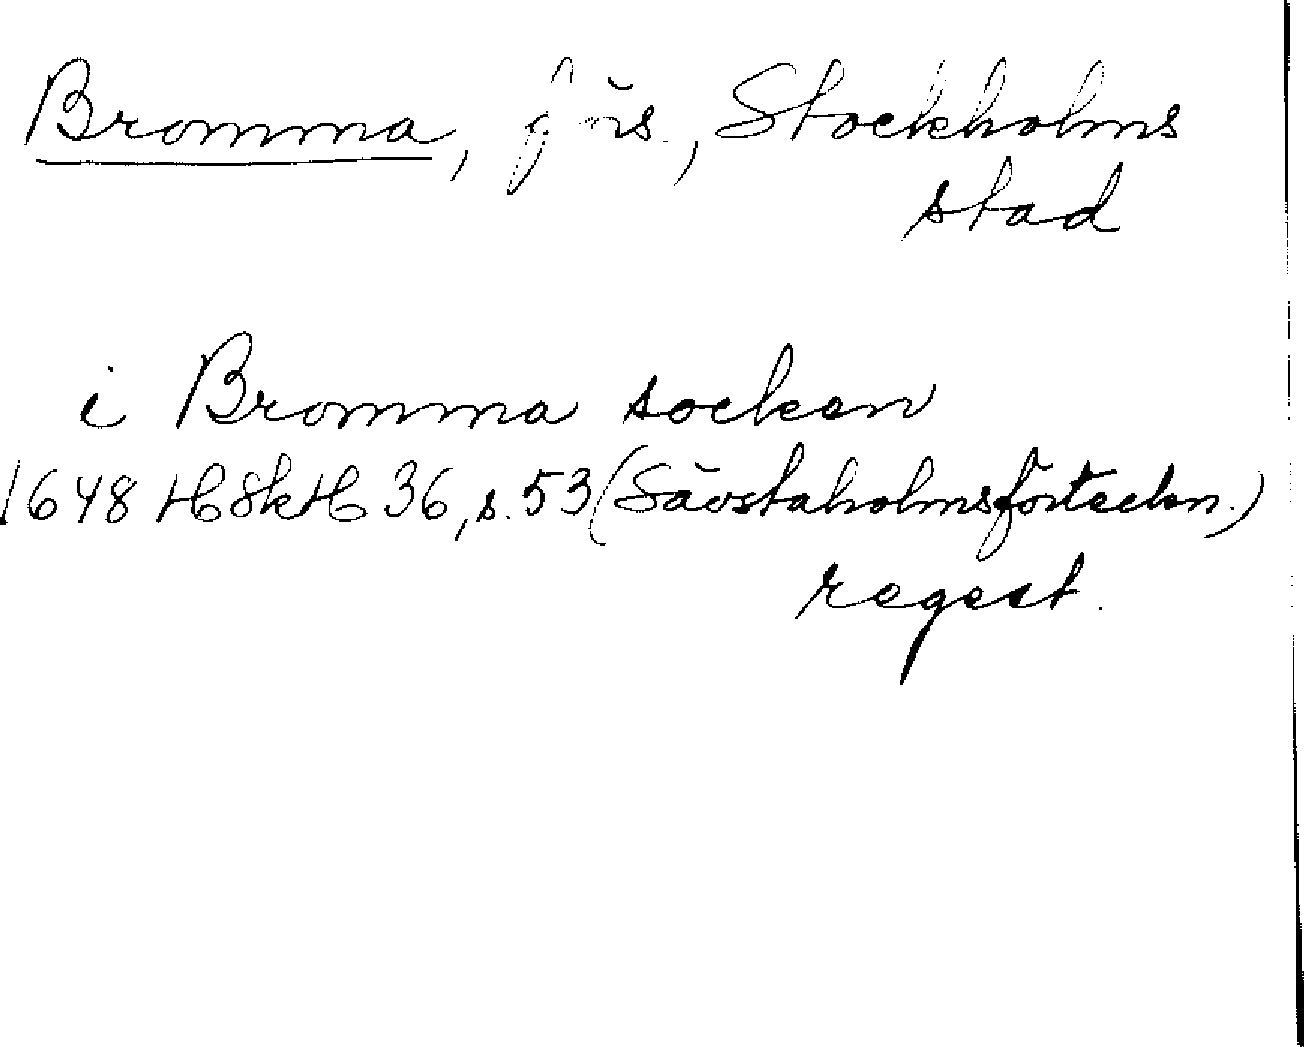 Bromma, förs., Stockholms
stad
i Bromma socken
1648 HSkH 36, s. 53 (Sävstaholmsförteckn.)
regest.